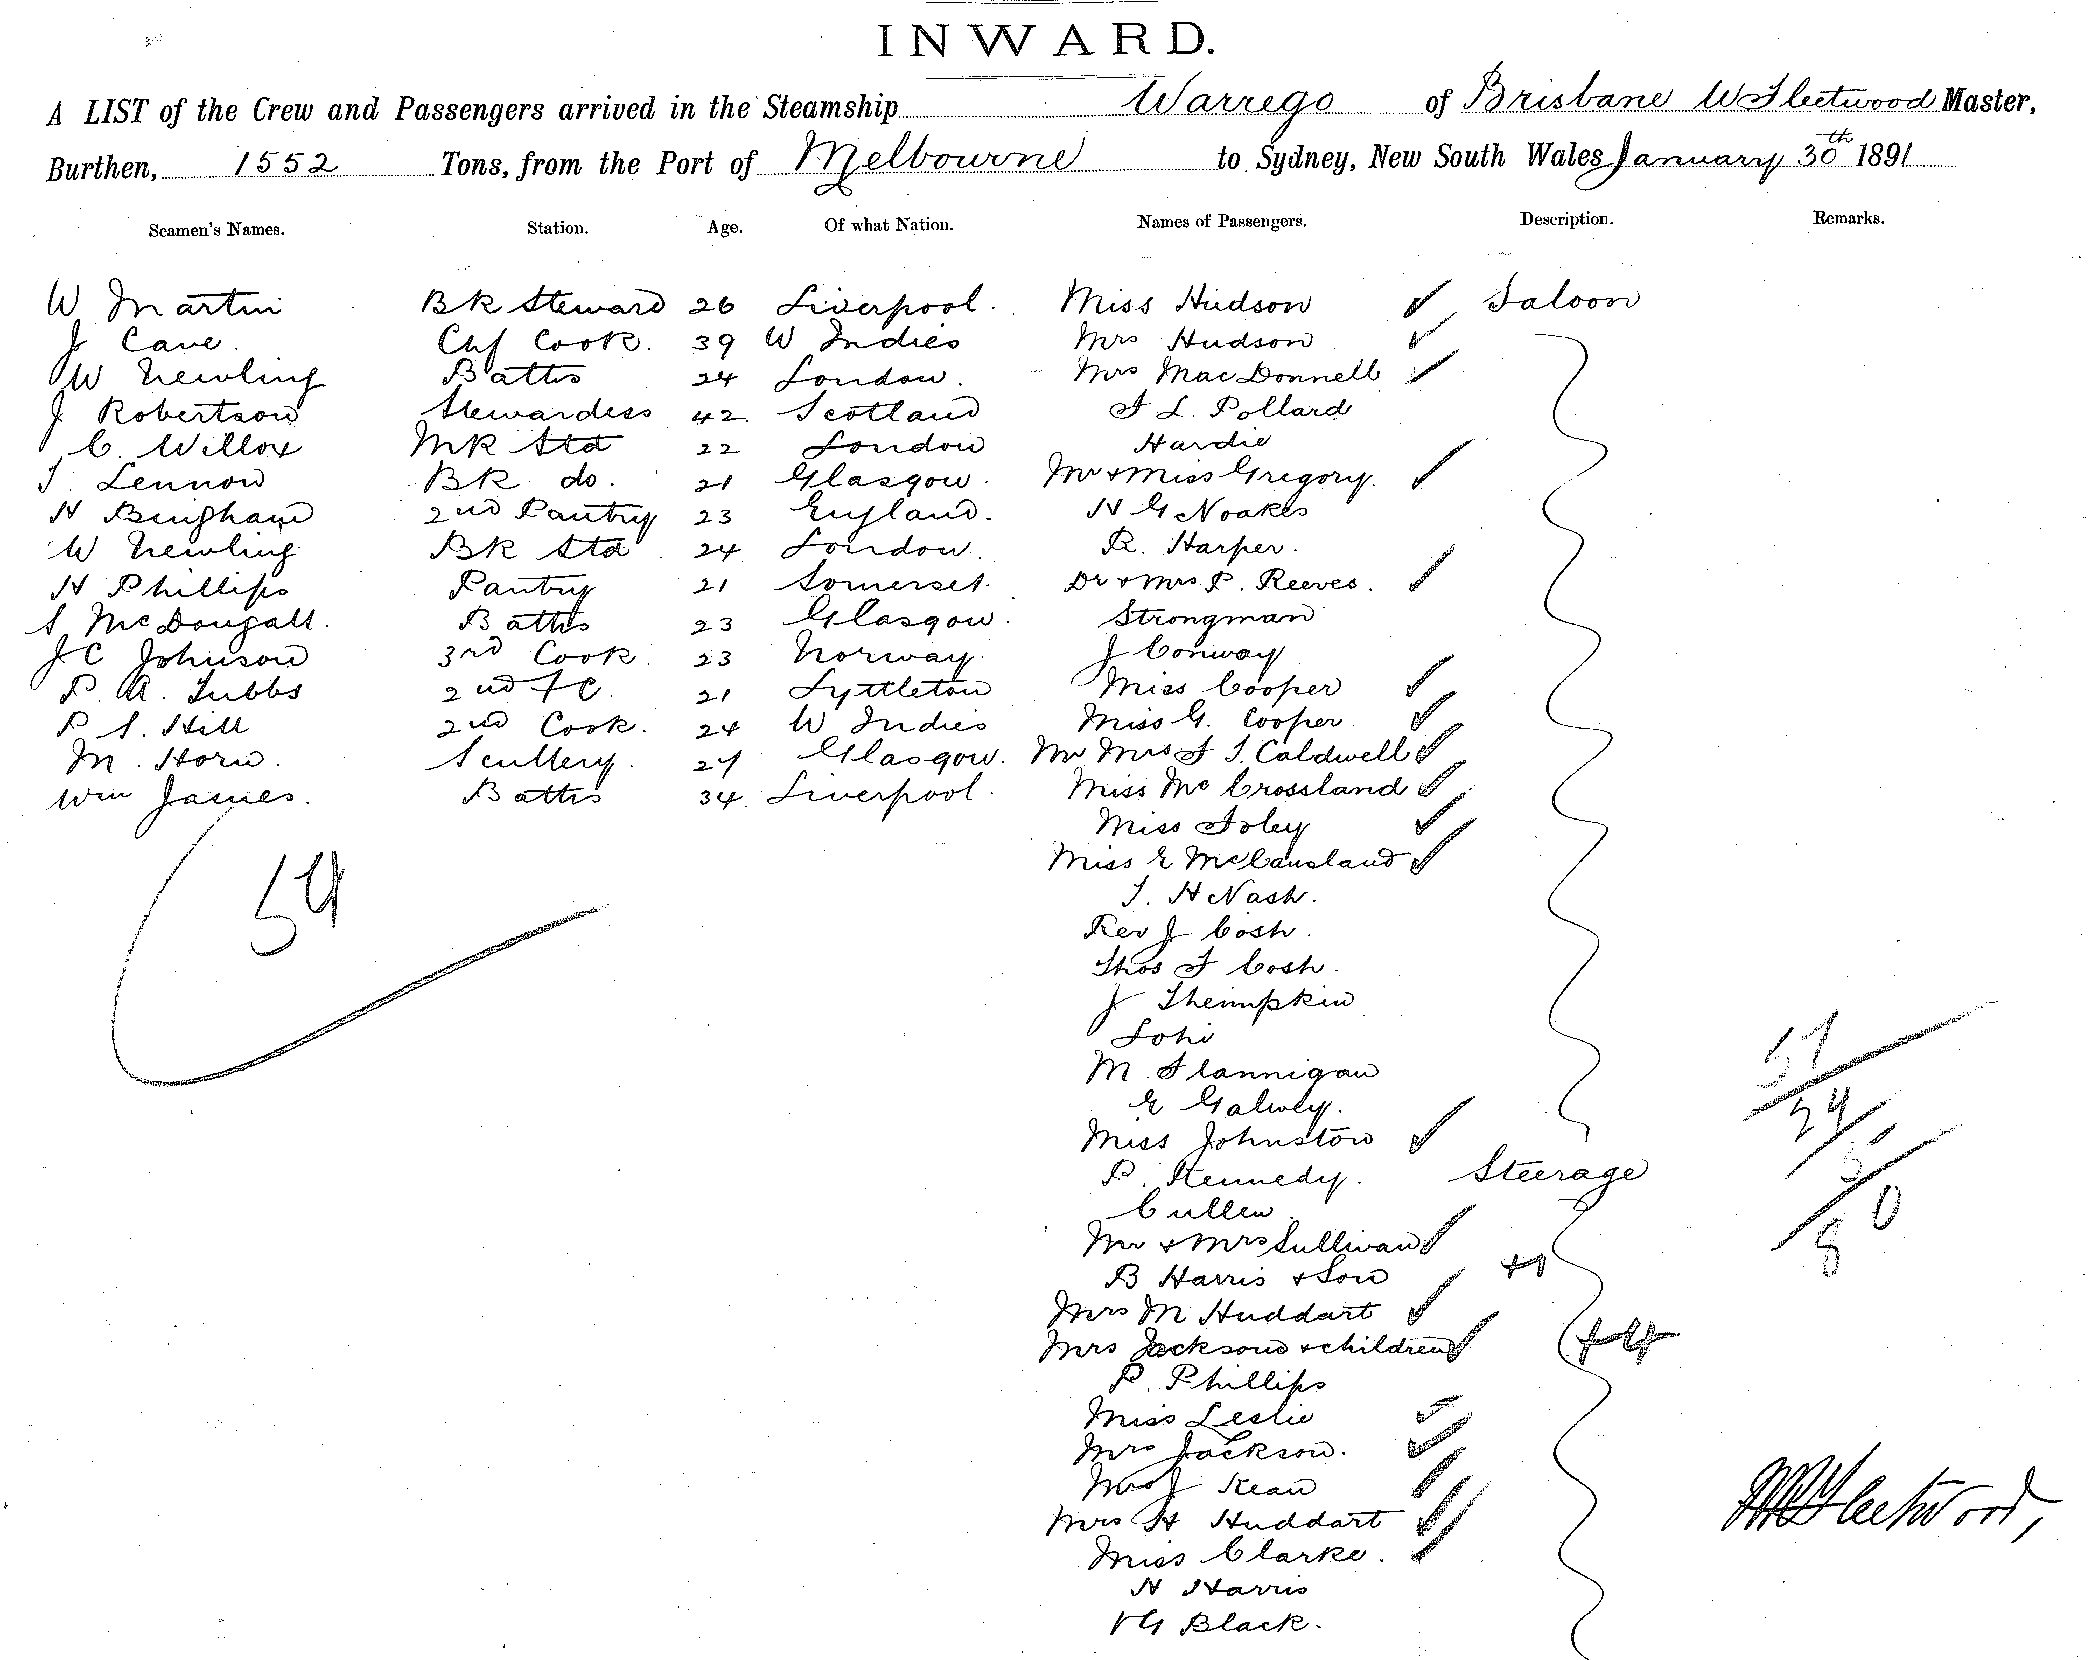 INWARD.
A LIST of the Crew and Passengers arrived in the Steamship Warrego of Brisbane W Fleetwood Master,
Burthen, 1552 Tons, from the Port of Melbourne to Sydney, New South Wales January 30th 1891
Seamen's Names. Station. Age. Of what Nation. Names of Passengers. Description. Remarks.
W Martin BK Steward 26 Liverpool. Miss Hudson ✓ Saloon
J Cave. Chf Cook. 39 W Indies Mrs Hudson ✓
W Newling Baths 24 London. Mrs MacDonnell ✓
J Robertson Stewardess 42 Scotland F L. Pollard
C. Willox MK Std 22 London Hardie
T. Lennon BK do. 21 Glasgow. Mr & Miss Gregory. ✓
H Bingham 2nd Pantry 23 England. H G Noakes
W Newling BK Std 24 London. R. Harper.
H Phillips Pantry 21 Somerset. Dr & Mrs P. Reeves. ✓
S McDougall. Baths 23 Glasgow. Strongman
J C Johnson 3rd Cook 23 Norway. J Conway
P. A. Tubbs 2nd F C. 21 Lyttleton Miss Cooper ✓
P S. Hill 2nd Cook. 24 W Indies Miss G. Cooper ✓
M. Horn. Scullery. Glasgow. Mr Mrs F T. Caldwell ✓
Wm James. Baths 34 Liverpool. Miss Mc Crossland ✓
Miss Foley ✓
Miss E McCausland ✓
54
T. H Nash.
Rev J Cosh.
Thos F Cosh.
J
M Flannigan
57
E Galwey.
24
Miss Johnston ✓
5
P. Kennedy. Steerage
80
Cullen
Mr & Mrs Sullivan ✓
B Harris & Son +1
Mrs M Huddart ✓
Mrs Jackson & children ✓ +4
P. Phillips
Miss Leslie ✓
Mrs Jackson. ✓
Mrs J Kean ✓
Mrs H Huddart ✓
W Fleetwood,
Miss Clarke. ✓
H Harris
V G Black.